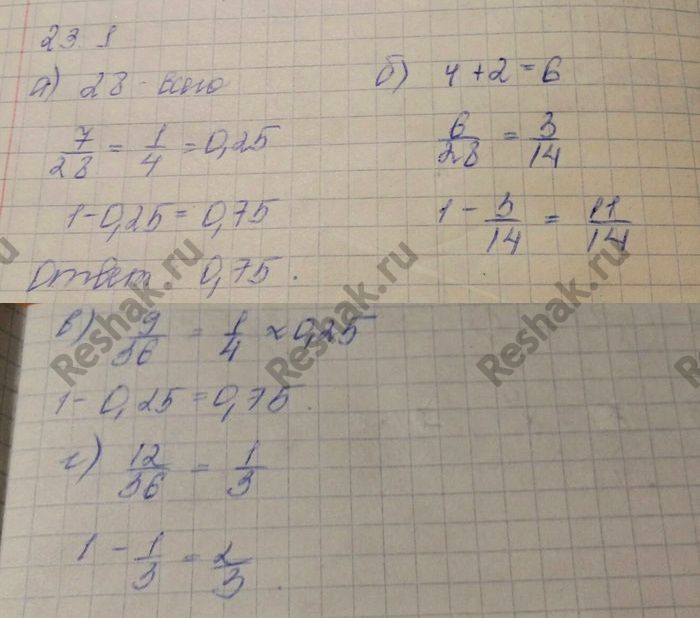 23.1
а) 28 - всего
7/28 = 1/4 = 0,25
1 - 0,25 = 0,75
Ответ 0,75.
б) 4 + 2 = 6
6/28 = 3/14
1 - 3/14 = 11/14
в) 9/36 = 1/4 ≈ 0,25
1 - 0,25 = 0,75.
г) 12/36 = 1/3
1 - 1/3 = 2/3.
Reshak.ru
Reshak.ru
Reshak.ru
Reshak.ru